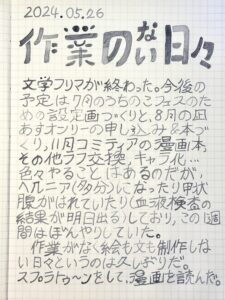 2024.05.26
作業のない日々
文学フリマが終わった。今後の
予定は7月のうちのこフェスのた
めの設定画づくりと、8月の凪
あすオンリーの申し込み&本づ
くり、11月コミティアの漫画本、
その他ラフ交換、キャラ化…
色々やることはあるのだが、
ヘルニア(多分)になったり甲状
腺がはれていたり(血液検査の
結果が明日出る)しており、この1週
間はぼんやりしていた。
作業がなく絵も文も制作しな
い日々というのは久しぶりだ。
スプラトゥーンをして、漫画を読んだ。